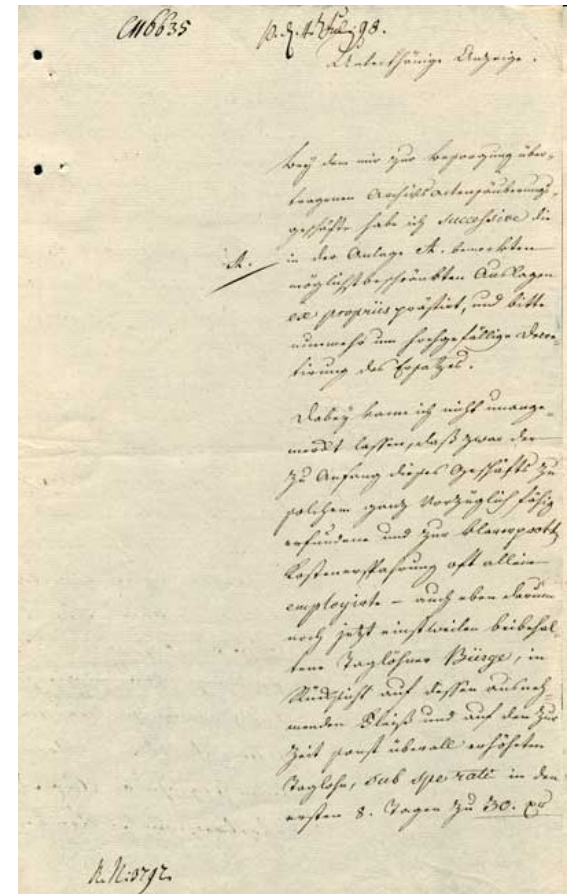 p. d. 4. July 98.
Unterthänige Anzeige.
Bey dem mir zur Besorgung über-
tragenen Archivsactensäuberungs-
geschäfte habe ich successive die
A.
in der Anlage A. bemerkten
möglichst beschränkten Auslagen
ex propriis prästirt, und bitte
nunmehr um hochgefällige Decre-
tirung des Ersatzes.
Dabey kann ich nicht unange-
merkt lassen, daß zwar der
zu Anfang dieses Geschäfts zu
solchem ganz vorzüglich fähig
erfundene und zur
Kostenersparung oft allein
employirte – auch eben darum
noch jetzt einstweilen beibehal-
tene Taglöhner Bürge, in
Rücksicht auf dessen ausneh-
menden Fleiß und auf den zur
Zeit sonst überall erhöhten
Taglohn, sub spe rati in den
ersten 8. Tagen zu 30. xr